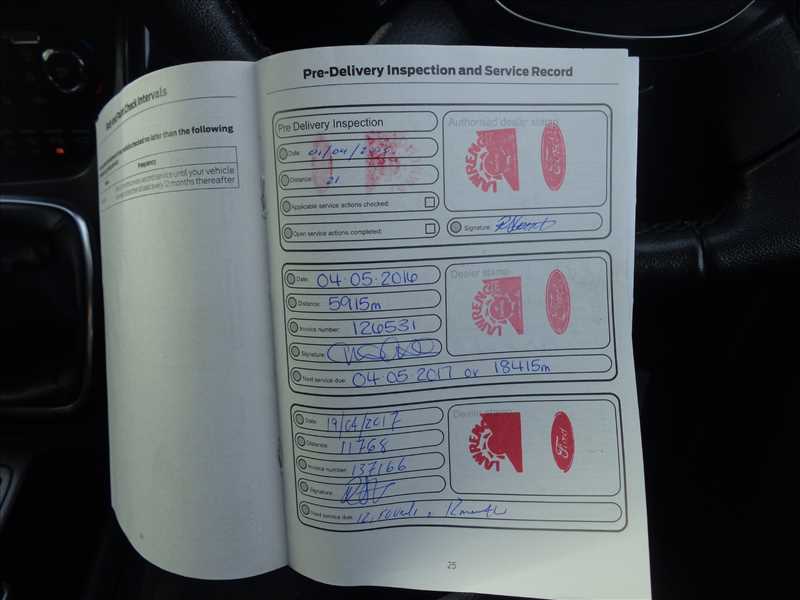 Check Intervals
checked no later than the following
Frequency
second service until your vehicle
least every 12 months thereafter
Pre-Delivery Inspection and Service Record
Pre Delivery Inspection
Authorised dealer stamp
Date: 01/04/2015
LAWRENCE
Ford
Distance: 21
Applicable service actions checked:
Open service actions completed:
Signature:
Date: 04·05·2016
Dealer stamp
LAWRENCE
Ford
Distance: 5915m
Invoice number: 126531
Signature:
Next service due: 04·05·2017 or 18415m
Date: 19/04/2017
Dealer stamp
LAWRENCE
Ford
Distance: 11768
Invoice number: 137166
Signature:
Next service due:
25